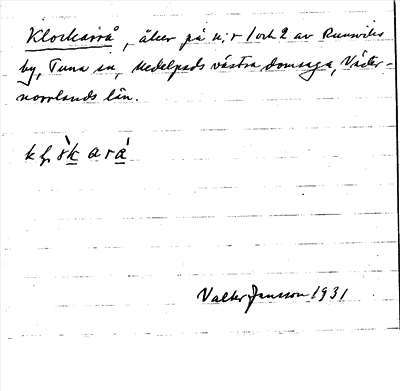 Klockarrå, åker på n:r 1 och 2 av Runsviks
by, Tuna sn, Medelpads västra domsaga, Väster-
norrlands län.
Valter Jansson 1931